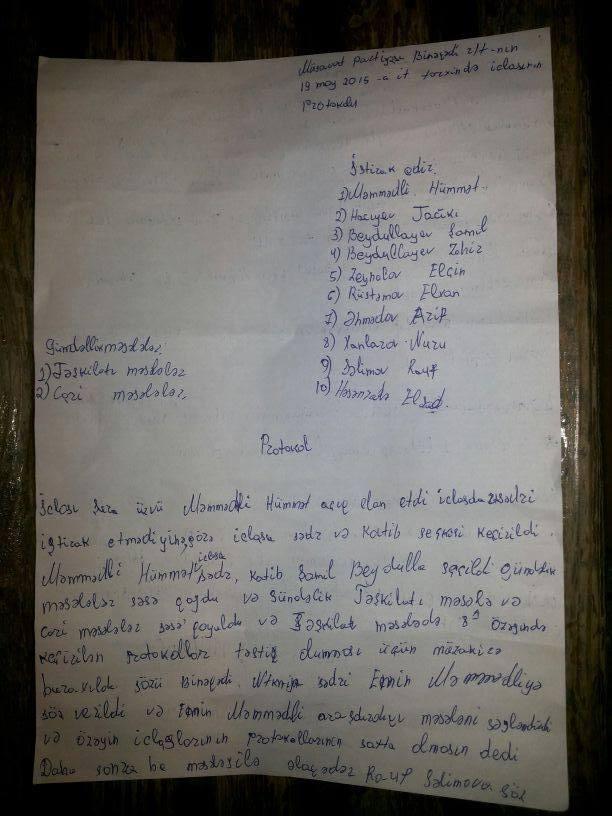 Müsavat partiyası Binəqədi r/t-nın
19 may 2015-a it tarixində iclasının
Protokolu
İştirak edir.
1) Məmmədli Hümmət.
2) Hacıyev
3) Beydullayev Şamil
4) Beydullayev Zahir
5) Zeynalov Elçin
6) Rüstəmov Elxan
7) Əhmədov Arif
8) Xanlarov Nuru
9) Səlimov Rauf
10) Həsənzadə Elşad.
Gündəlik məsələlər
1) Təşkilatı məsələlər
2) Cari məsələlər,
Protokol
İclası Şura üzvü Məmmədli Hümmət açıq elan etdi iclasda sədri
iştirak etmədiyinə görə iclasa sədr və Katib seçkisi keçirildi.
Məmmədli Hümmət iclasa sədr, katib Şamil Beydulla seçildi gündəlik
məsələlər səsə qoydu və Gündəlik Təşkilatı məsələ və
cari məsələlər səsə qoyuldu və Təşkilatı məsələdə 8ci özəyində
keçirilən protokollar təstiq olunması üçün müzakirə
buraxıldı sözü Binəqədi sədri Emin Məmmədliyə
söz verildi və Emin Məmmədli araşdırdığı məsələni səsləndirdi
və özəyin iclaslarının protokollarının saxta olmasın dedi
Daha sonra bu məsələ ilə əlaqədər Rauf Səlimova söz